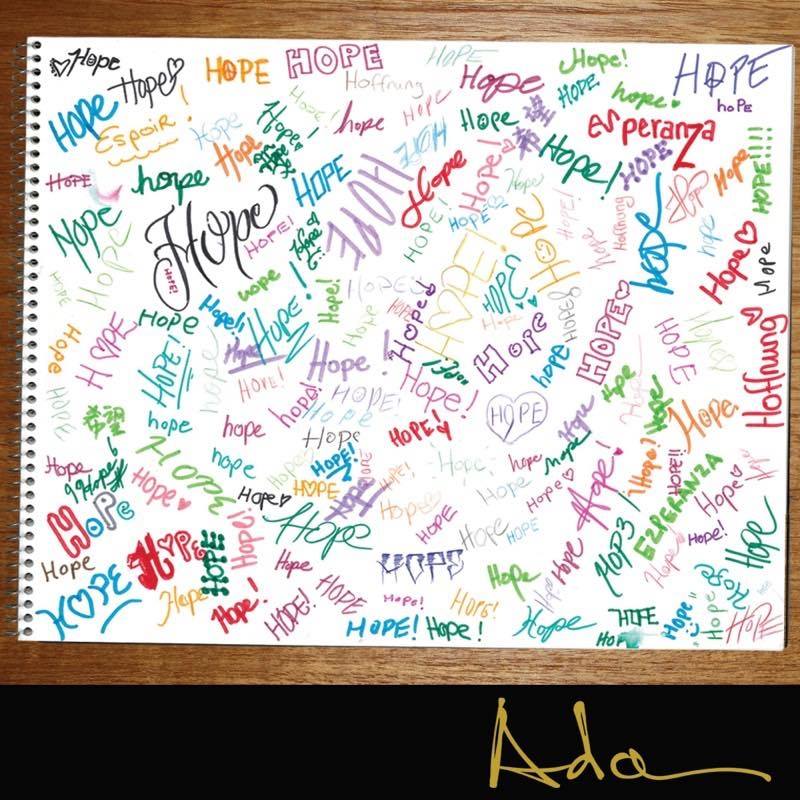 Hope Hope HOPE HOPE HOPE Hope! HOPE
Hoffnung Hope HOPE hope hOPE
HOPE Espoir! Hope HOPE! Hope! hope HOPE HOPE Hope 希望 esperanza
HOPE hope Hope HOPE HOPE Hope Hope! Hope Hope! HOPE Hope Hope HOPE!!!!
Hope Hope HOPE! Hope HOPE! HOPE Hope! HOPE! Hoffnung hope hope Hope Hope
HOPE HOPE HOPE! Hope hope Hope! HOPE! HOPE! HOPE! Hope HOPE HOPE
Hope HOPE Hope HOPE! Hope! Hope Hope HOPE HOPE hope HOPE HOPE Hoffnung
HOPE! Hope! HOPE! HOPE! HOPE
希望 hope hope hope! HOPE! Hope Hope! Hope Hope Hope Hope
Hope hope Hope HOPE! hope hope ¡Hope! HOPE!! Hope
¡Hope! Hope HOPE Hope HOPE HOPE! Hope Hope Hope! EZPERANZA Hope
HOPE Hope Hope HOPE HOPE HOPE Hope! Hope
Hope HOPE HOPE HOPE! Hope HOPE Hope Hope HOPE! Hope Hope
HOPE Hope Hope! HOPE! HOPE HOPE! HOPE! Hope Hope HOPE Hope HOPE
HOPE! HOPE! HOPE
Ada